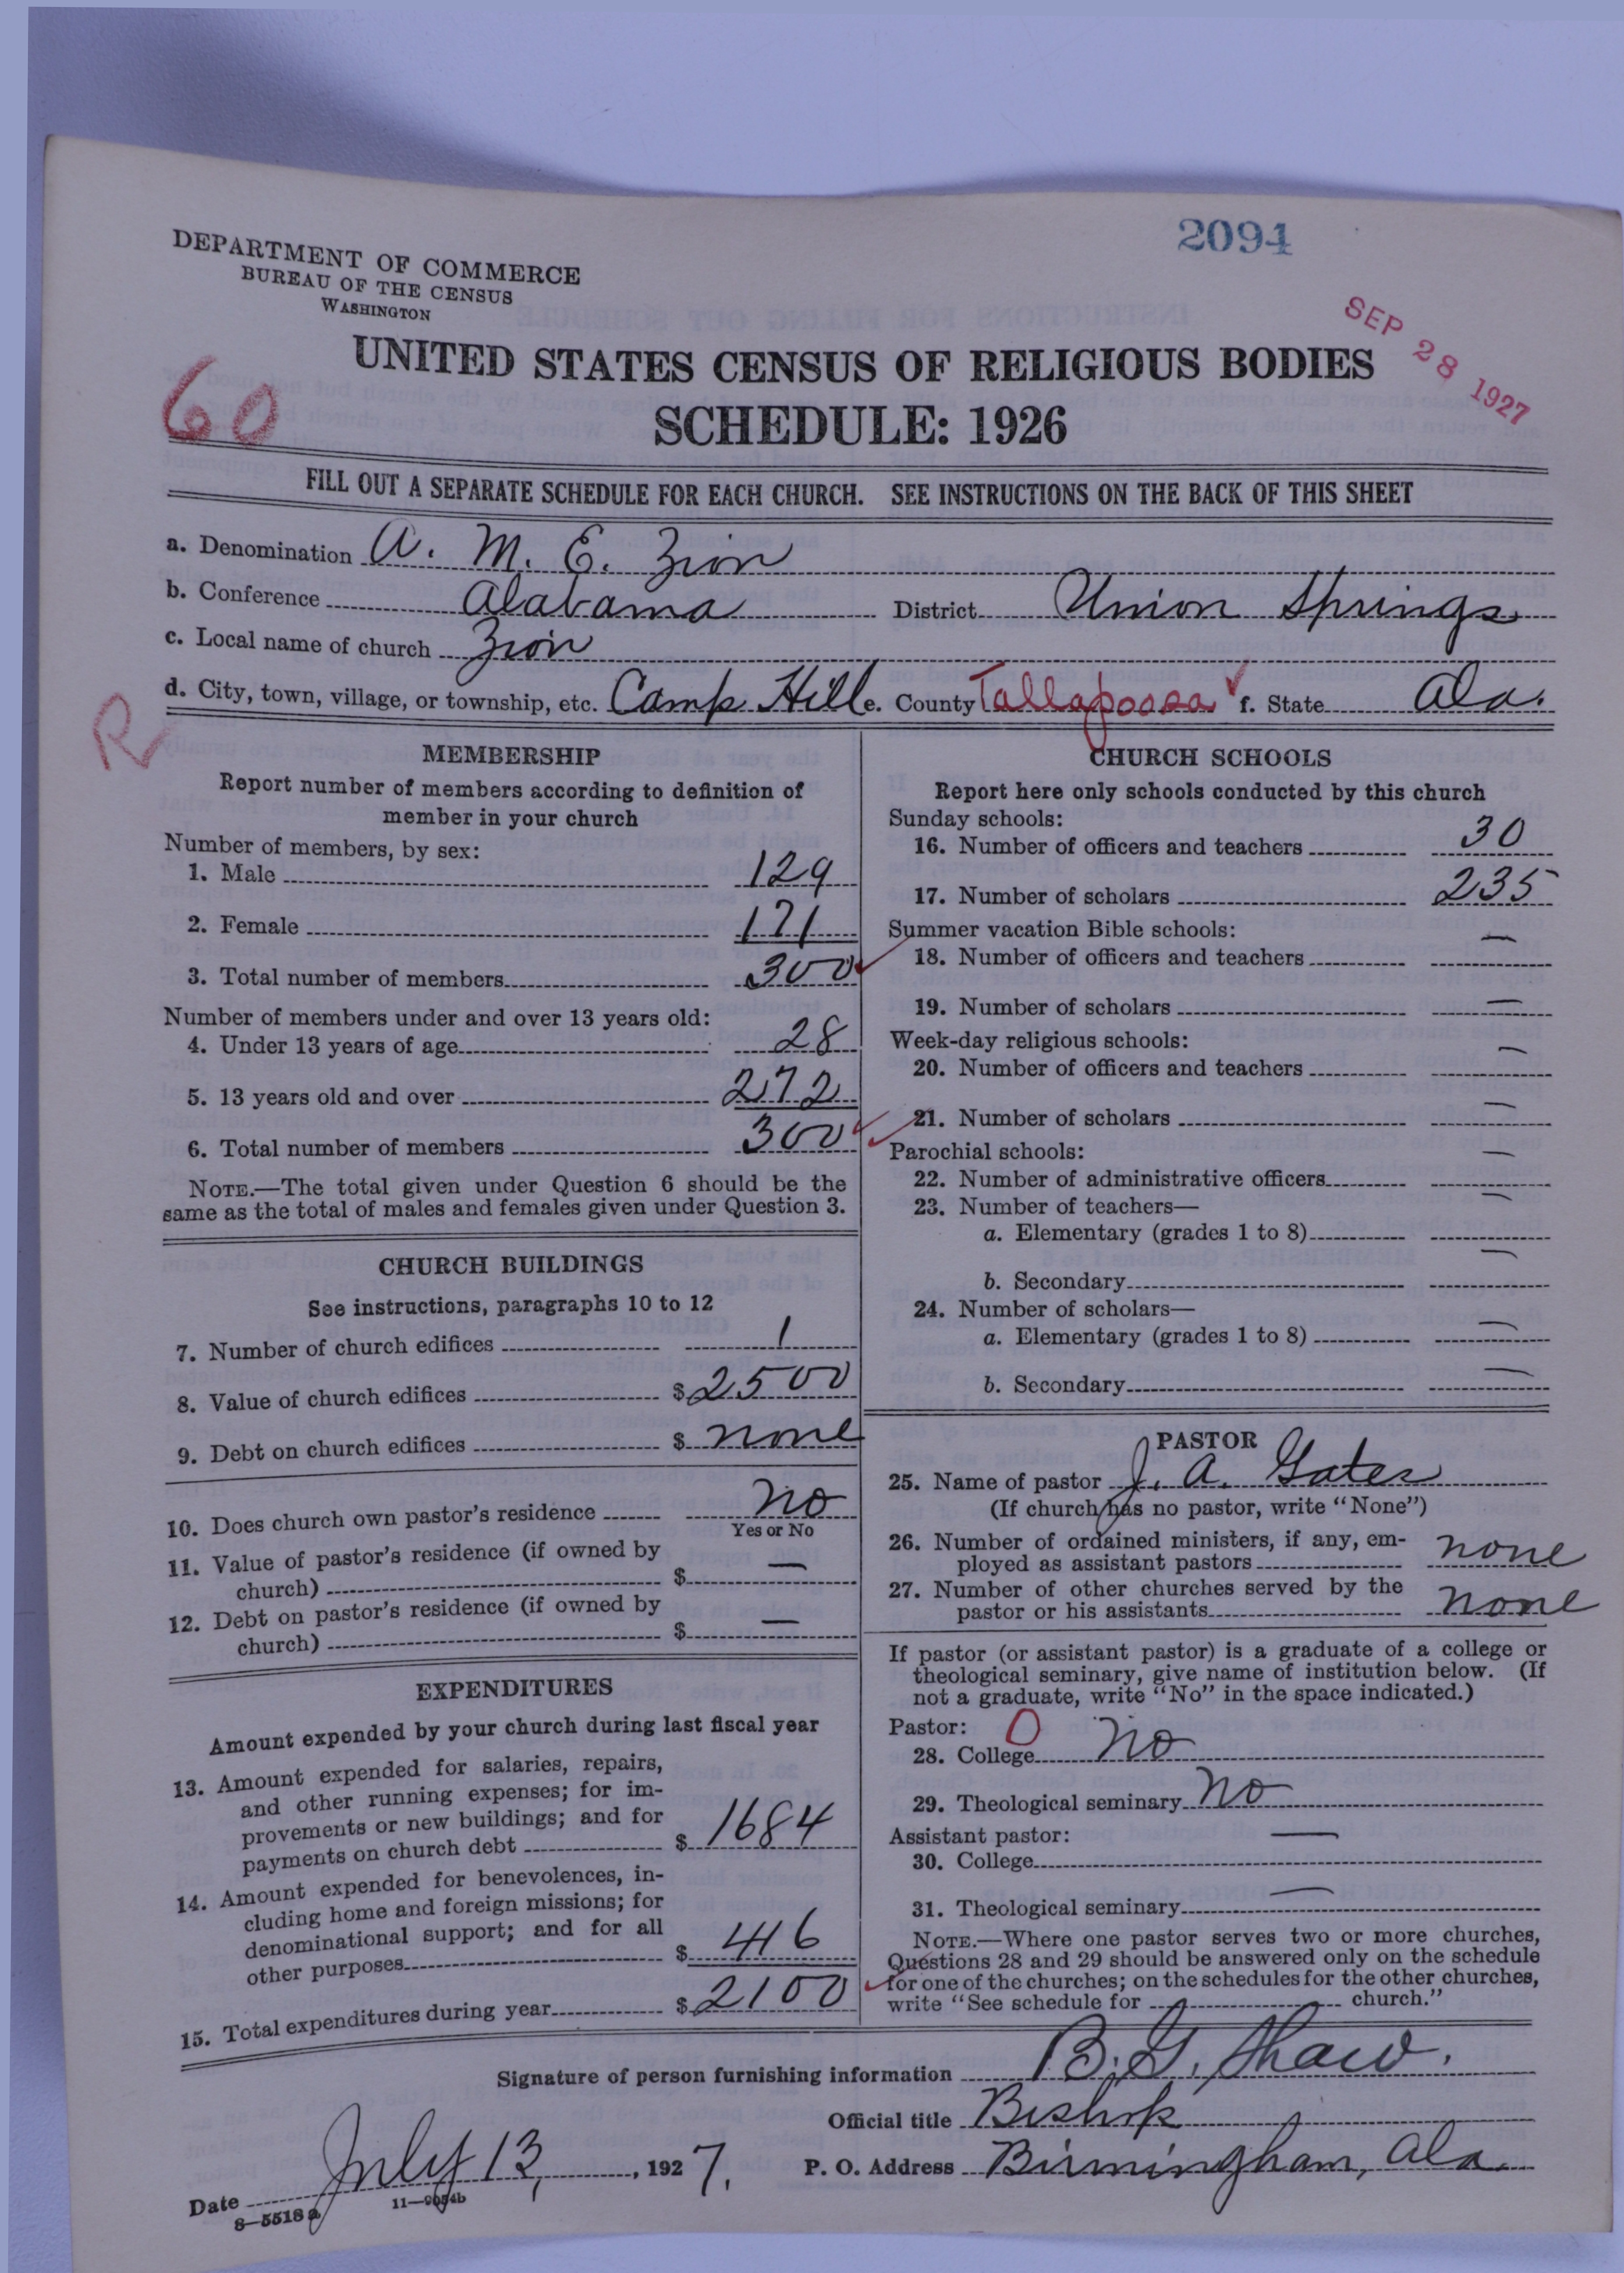 2094
DEPARTMENT OF COMMERCE
BUREAU OF THE CENSUS
WASHINGTON
SEP 28 1927
UNITED STATES CENSUS OF RELIGIOUS BODIES
60
SCHEDULE: 1926
FILL OUT A SEPARATE SCHEDULE FOR EACH CHURCH. SEE INSTRUCTIONS ON THE BACK OF THIS SHEET
a. Denomination A. M. E. Zion
b. Conference Alabama District Union Springs
c. Local name of church Zion
d. City, town, village, or township, etc. Camp Hill e. County Tallapoosa f. State Ala.
R
MEMBERSHIP
Report number of members according to definition of
member in your church
Number of members, by sex:
1. Male 129
2. Female 171
3. Total number of members 300
Number of members under and over 13 years old:
4. Under 13 years of age 28
5. 13 years old and over 272
6. Total number of members 300
NOTE.—The total given under Question 6 should be the
same as the total of males and females given under Question 3.
CHURCH BUILDINGS
See instructions, paragraphs 10 to 12
7. Number of church edifices 1
8. Value of church edifices $ 2500
9. Debt on church edifices $ none
10. Does church own pastor's residence no
Yes or No
11. Value of pastor's residence (if owned by
church) $ —
12. Debt on pastor's residence (if owned by
church) $ —
EXPENDITURES
Amount expended by your church during last fiscal year
13. Amount expended for salaries, repairs,
and other running expenses; for im-
provements or new buildings; and for
payments on church debt $ 1684
14. Amount expended for benevolences, in-
cluding home and foreign missions; for
denominational support; and for all
other purposes $ 416
15. Total expenditures during year $ 2100
CHURCH SCHOOLS
Report here only schools conducted by this church
Sunday schools:
16. Number of officers and teachers 30
17. Number of scholars 235
Summer vacation Bible schools:
18. Number of officers and teachers —
19. Number of scholars —
Week-day religious schools:
20. Number of officers and teachers —
21. Number of scholars —
Parochial schools:
22. Number of administrative officers —
23. Number of teachers—
a. Elementary (grades 1 to 8) —
b. Secondary —
24. Number of scholars—
a. Elementary (grades 1 to 8) —
b. Secondary —
PASTOR
25. Name of pastor J. A. Gates
(If church has no pastor, write "None")
26. Number of ordained ministers, if any, em-
ployed as assistant pastors none
27. Number of other churches served by the
pastor or his assistants none
If pastor (or assistant pastor) is a graduate of a college or
theological seminary, give name of institution below. (If
not a graduate, write "No" in the space indicated.)
Pastor: 0
28. College No
29. Theological seminary No
Assistant pastor:
30. College —
31. Theological seminary —
NOTE.—Where one pastor serves two or more churches,
Questions 28 and 29 should be answered only on the schedule
for one of the churches; on the schedules for the other churches,
write "See schedule for church."
Signature of person furnishing information B. G. Shaw.
Official title Bishop
Date July 13, 1927. P. O. Address Birmingham, Ala.
8—5518 a 11—9054b